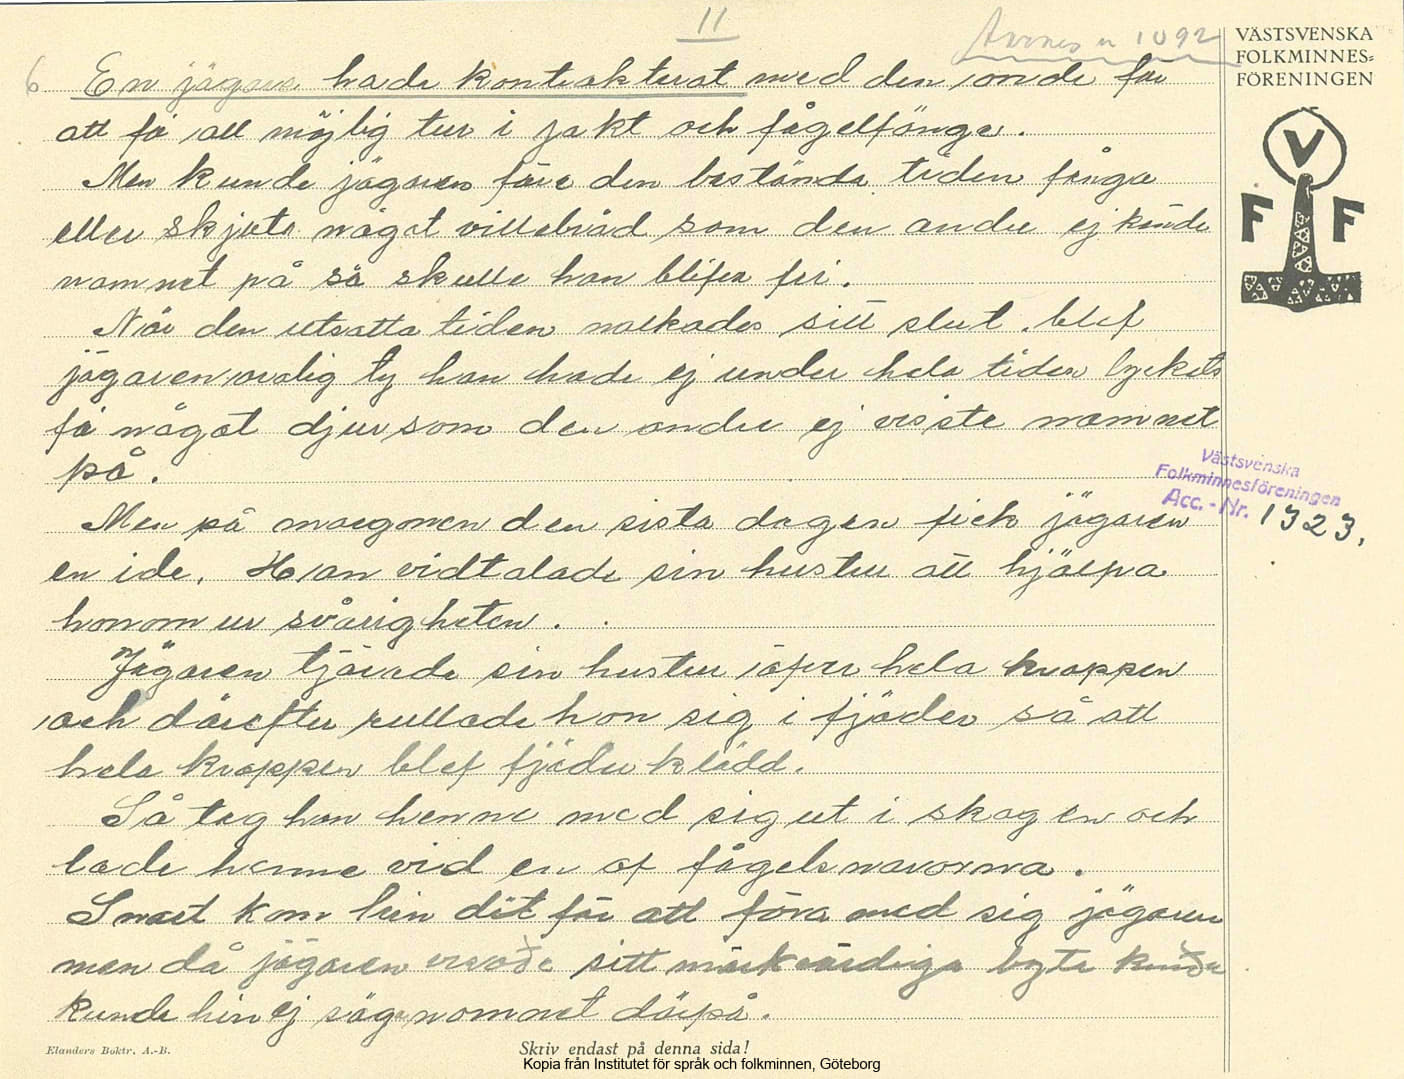 11
Aarnes n 1092
VÄSTSVENSKA
FOLKMINNES=
FÖRENINGEN
V
F F
6 En jägare hade kontrakterat med den onde för
att få all möjlig tur i jakt och fågelfänge.
Men kunde jägaren före den bestämda tiden fånga
eller skjuta något villebråd som den andre ej kunde
namnet på så skulle han blifva fri.
När den utsatta tiden nalkades sitt slut blef
jägaren orolig ty han hade ej under hela tiden lyckats
få något djur som den andre ej visste namnet
på.
Västsvenska
Folkminnesföreningen
Acc. - Nr. 1323,
Men på morgonen den sista dagen fick jägaren
en ide. Han vidtalade sin hustru att hjälpa
honom ur svårigheten.
Jägaren tjärade sin hustru öfver hela kroppen
och därefter rullade hon sig i fjäder så att
hela kroppen blef fjäderklädd.
Så tog han henne med sig ut i skogen och
lade henne vid en af fågelsnarorna.
Snart kom hin dit för att föra med sig jägaren
men då jägaren visade sitt märkvärdiga byte kunde
kunde hin ej säga namnet därpå.
Elanders Boktr. A.-B.
Skriv endast på denna sida!
Kopia från Institutet för språk och folkminnen, Göteborg